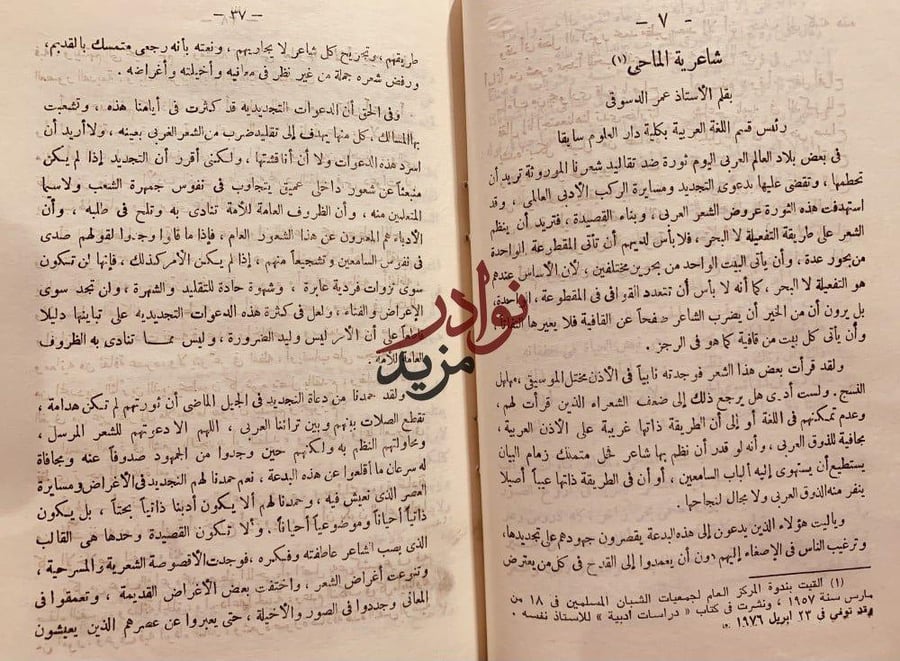 — ٧ —
شاعرية الماحى (١)
بقلم الأستاذ عمر الدسوقى
رئيس قسم اللغة العربية بكلية دار العلوم سابقا
فى بعض بلاد العالم العربى اليوم ثورة ضد تقاليد شعرنا الموروثة تريد أن
تحطمها ، وتقضى عليها بدعوى التجديد ومسايرة الركب الأدبى العالمى ، وقد
استهدفت هذه الثورة عروض الشعر العربى ، وبناء القصيدة ، فتريد أن ينظم
الشعر على طريقة التفعيلة لا البحر ، فلا بأس لديهم أن تأتى المقطوعة الواحدة
من بحور عدة ، وأن يأتى البيت الواحد من بحرين مختلفين ، لأن الأساس عندهم
هو التفعيلة لا البحر ، كما أنه لا بأس أن تتعدد القوافى فى المقطوعة الواحدة ،
بل يرون أن من الخير أن يضرب الشاعر صفحاً عن القافية فلا يعيرها التفاتا
وأن يأتى كل بيت من قافية كما هو فى الرجز .
ولقد قرأت بعض هذا الشعر فوجدته نابياً فى الأذن مختل الموسيقى ، مهلهل
النسج . ولست أدرى هل يرجع ذلك إلى ضعف الشعراء الذين قرأت لهم ،
وعدم تمكنهم فى اللغة أو إلى أن الطريقة ذاتها غريبة على الأذن العربية ،
مجافية للذوق العربى ، وأنه لو قدر أن نظم بها شاعر فحل متملك زمام البيان
يستطيع أن يستهوى إليه ألباب السامعين ، أو أن فى الطريقة ذاتها عيباً أصيلا
ينفر منه الذوق العربى ولا مجال لنجاحها .
وياليت هؤلاء الذين يدعون إلى هذه البدعة يقصرون جهودهم على تجديدها ،
وترغيب الناس فى الإصغاء إليهم دون أن يعمدوا إلى القدح فى كل من يعترض
(١) القيت بندوة المركز العام لجمعيات الشبان المسلمين فى ١٨ من
مارس سنة ١٩٥٧ ، ونشرت فى كتاب « دراسات أدبية » للاستاذ نفسه .
وقد توفى فى ٢٣ ابريل ١٩٧٦ .
— ٣٧ —
طريقتهم ، وتجريح كل شاعر لا يجاريهم ، ونعته بأنه رجعى متمسك بالقديم ،
ورفض شعره جملة من غير نظر فى معانيه وأخيلته وأغراضه .
وفى الحق أن الدعوات التجديدية قد كثرت فى أيامنا هذه ، وتشعبت
بها المسالك ، كل منها يهدف إلى تقليد ضرب من الشعر الغربى بعينه ، ولا أريد أن
اسرد هذه الدعوات ولا أن أناقشها ، ولكنى أقرر أن التجديد إذا لم يكن
منبعثاً عن شعور داخلى عميق يتجاوب فى نفوس جمهرة الشعب ولاسيما
المتعلمين منه ، وأن الظروف العامة للأمة تنادى به وتلح فى طلبه ، وأن
الأدباء هم المعبرون عن هذا الشعور العام ، فإذا ما قالوا وجدوا لقولهم صدى
فى نفوس السامعين وتشجيعا منهم ، إذا لم يكن الأمر كذلك ، فإنها لن تكون
سوى نزوات فردية عابرة ، وشهوة حادة للتقليد والشهرة ، ولن تجد سوى
الإعراض والفناء ، ولعل فى كثرة هذه الدعوات التجديدية على تباينها دليلا
قاطعاً على أن الأمر ليس وليد الضرورة ، وليس مما تنادى به الظروف
العامة للأمة
ولقد حمدنا من دعاة التجديد فى الجيل الماضى أن ثورتهم لم تكن هدامة ،
تقطع الصلات بينهم وبين تراثنا العربى ، اللهم الا دعوتهم للشعر المرسل ،
ومحاولتهم النظم به ولكنهم حين وجدوا من الجمهود صدوفاً عنه ومجافاة
له سرعان ما أقلعوا عن هذه البدعة ، نعم حمدنا لهم التجديد فى الأغراض ومسايرة
العصر الذى نعيش فيه ، وحمدنا لهم ألا يكون أدبنا ذاتياً بحتاً ، بل يكون
ذاتياً أحياناً وموضوعياً أحياناً ، وألا تكون القصيدة وحدها هى القالب
الذى يصب الشاعر عاطفته وفكره ، فوجدت الأقصوصة الشعرية والمسرحية ،
وتنوعت أغراض الشعر ، واختفت بعض الأغراض القديمة ، وتعمقوا فى
المعانى وجددوا فى الصور والأخيلة ، حتى يعبروا عن عصرهم الذين يعيشون
نوادر
مزيد